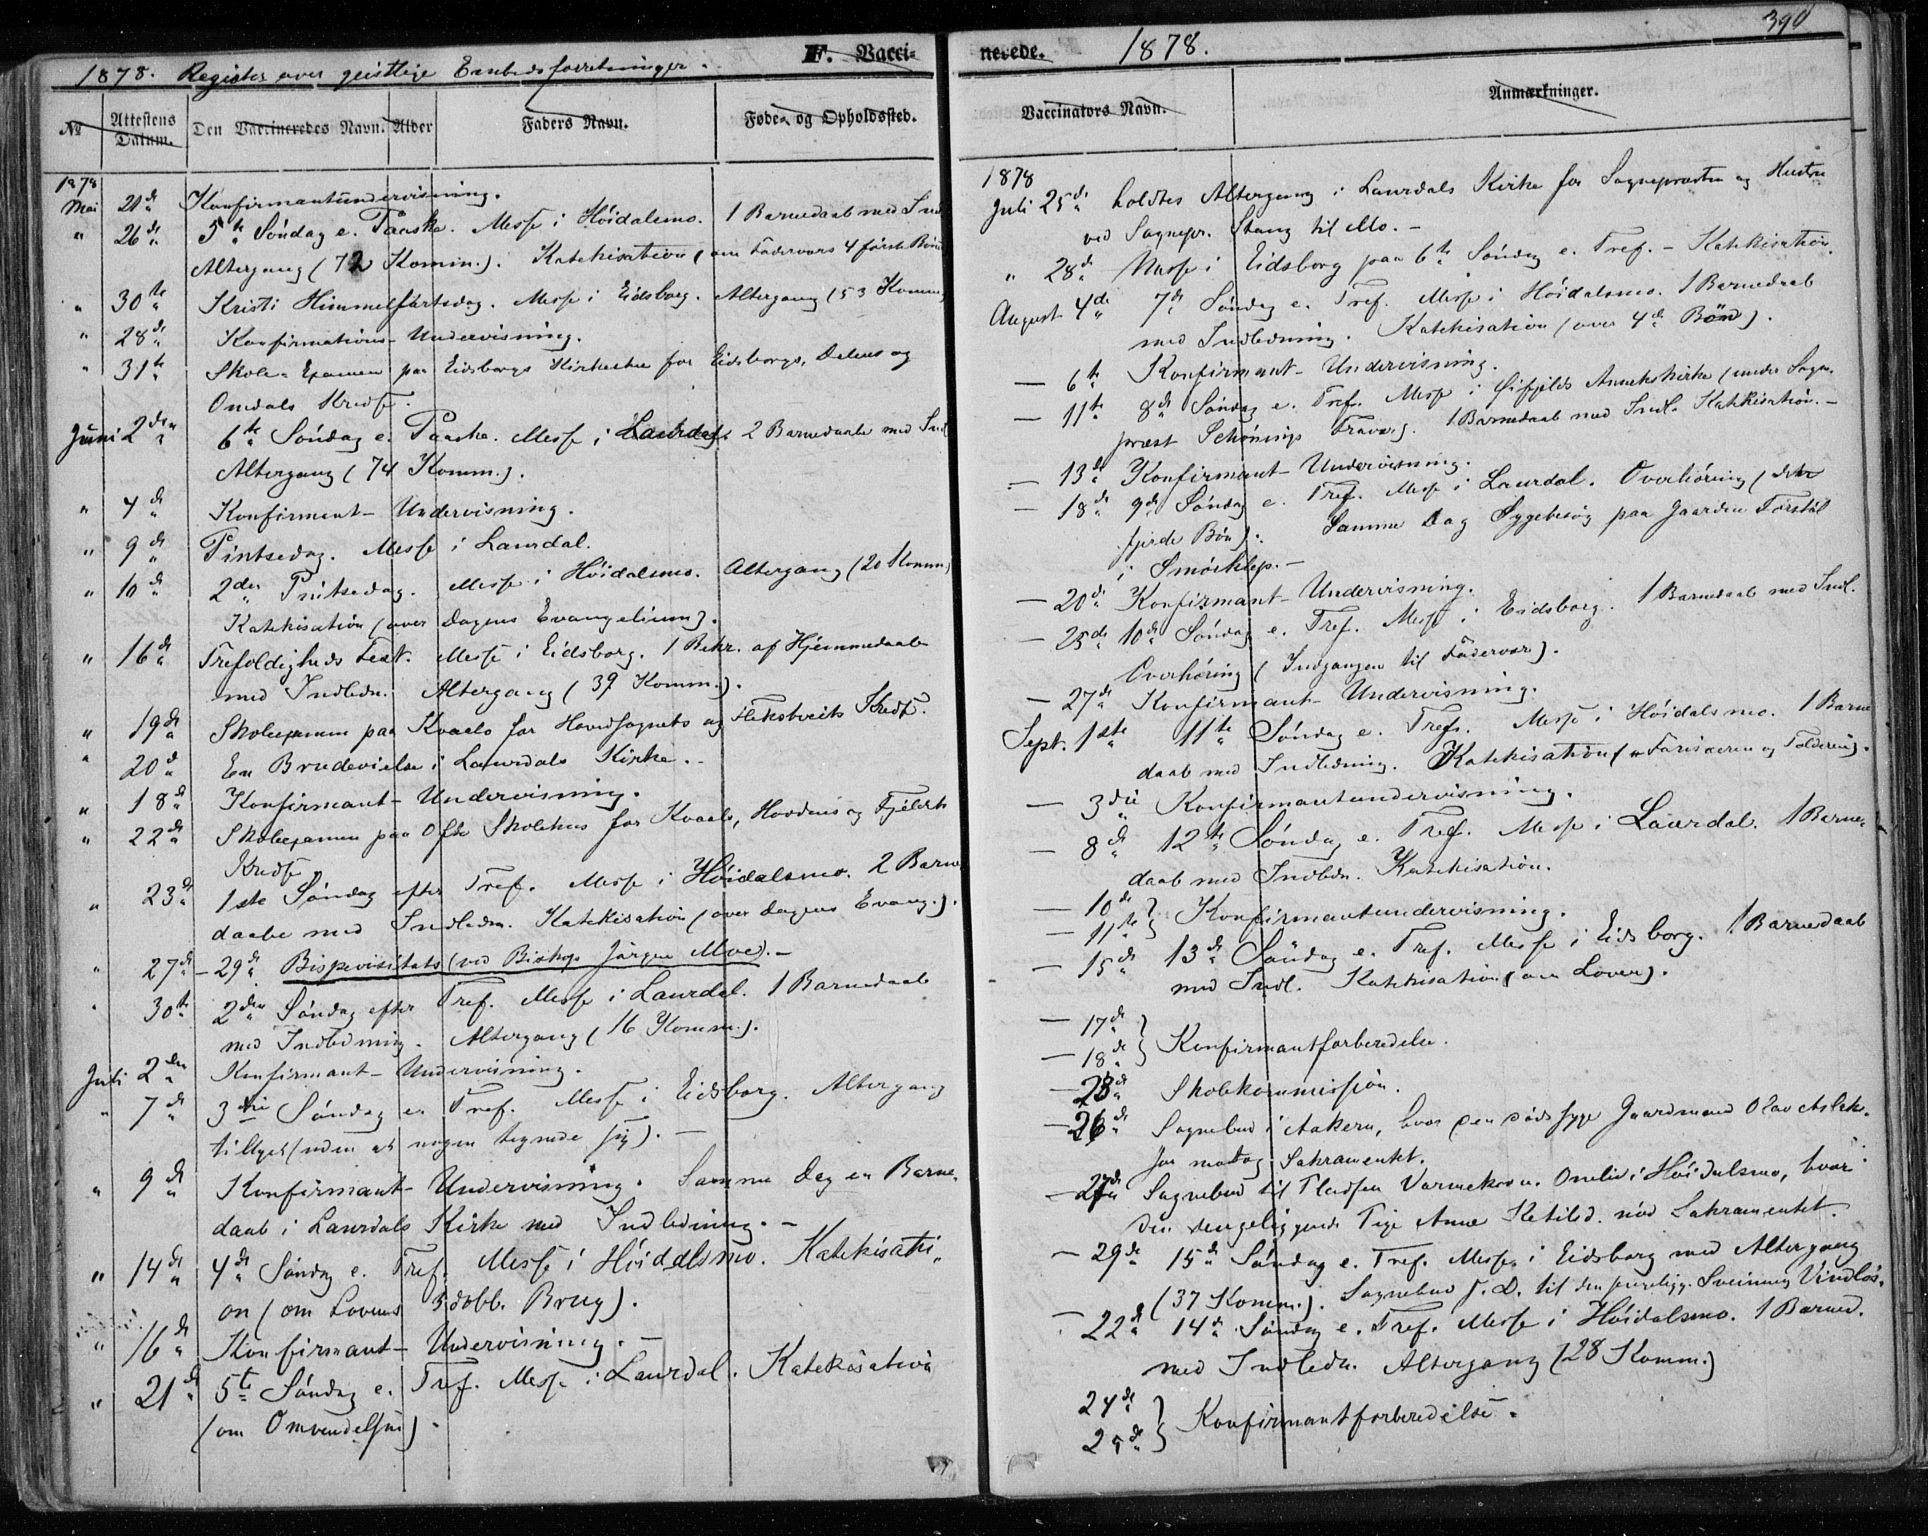 1878. Register over geistlige Embedsforretninger.
F. Vacci-
№
Attestens Datum.
Den Vaccineredes Navn.
Alder
Faders Navn.
Føde- og Opholdssted.
1878
Mai 21de Konfirmantundervisning.
" 26de 5te Søndag e. Paaske. Messe i Höidalsmo. 1 Barnedaab med Indl.
Altergang (72 Komm.). Katekisation (om Fadervors 4 første Bønner
" 30te Kristi Himmelfartsdag. Messe i Eidsborg. Altergang (53 Komm.)
" 28de Konfirmations-Undervisning.
" 31te Skole-Examen paa Eidsborgs Kirkestue for Eidsborgs, Dalens og
Omdals Kredse.
Juni 2den 6te Søndag e. Paaske. Messe i Laurdal. 2 Barnedaabe med Indl.
Altergang (74 Komm.).
" 4de Konfirmant-Undervisning.
" 9de Pintsedag. Messe i Laurdal.
" 10de 2den Pintsedag. Messe i Höidalsmo. Altergang (20 Komm.)
Katekisation (over Dagens Evangelium).
" 16de Trefoldigheds Fest. Messe i Eidsborg. 1 Bekr. af Hjemmedaab
med Indledn. Altergang (39 Komm.).
" 19de Skoleexamen paa Kvaale for Hovedsognets og Heksteits Kredse.
" 20de En Brudevielse i Laurdals Kirke.
" 18de Konfirmant-Undervisning.
" 22de Skoleexamen paa Ofte Skolehus for Kvaals, Hovdens og Fjeldets
Kredse
" 23de 1ste Søndag efter Tref. Messe i Höidalsmo. 2 Barne-
daabe med Indledn. Katekisation (over Dagens Evang.).
" 27de - 29de Bispevisitats (ved Biskop Jörgen Moe).-
" 30te 2den Søndag efter Tref. Messe i Laurdal. 1 Barnedaab
med Indledning. Altergang (16 Komm.).
Juli 2den Konfirmant-Undervisning.
" 7de 3die Søndag e. Tref. Messe i Eidsborg. Altergang
tillyst (uden at nogen tegnede sig).-
" 9de Konfirmant-Undervisning. Samme Dag en Barne-
daab i Laurdals Kirke med Indledning.-
" 14de 4de Søndag e. Tref. Messe i Höidalsmo. Katekisati-
on (om Lovens 3dobb. Brug).
" 16de Konfirmant-Undervisning.-
" 21de 5te Søndag e. Tref. Messe i Laurdal. Katekisation
(om Omvendelsen).
nerede.
1878.
390
Vaccinators Navn.
Anmærkninger.
1878
Juli 25de holdtes Altergang i Laurdals Kirke for Sognepræsten og Hustru
ved Sognepr. Stang til Mo.-
" 28de Messe i Eidsborg paa 6te Søndag e. Tref.- Katekisation.
August 4de 7de Søndag e. Tref. Messe i Höidalsmo. 1 Barnedaab
med Indledning. Katekisation (over 4de Bøn).
- 6te Konfirmant-Undervisning.
- 11te 8de Søndag e. Tref. Messe i Annekskirke (under Sogne-
præst Schönings Fravær). 1 Barnedaab med Indl. Katekisation.-
- 13de Konfirmant-Undervisning.
- 18de 9de Søndag e. Tref. Messe i Laurdal. Overhöring (
fjerde Bön). Samme Dag Sygebesög paa Gaarden
i Smörklep.-
- 20de Konfirmant-Undervisning.
- 25de 10de Søndag e. Tref. Messe i Eidsborg. 1 Barnedaab med Indl.
Overhöring (Indgangen til Fadervor).
- 27de Konfirmant-Undervisning.
Sept. 1ste 11te Søndag e. Tref. Messe i Höidalsmo. 1 Barne-
daab med Indledning. Katekisation (Farisæeren og Tolderen).
- 3die Konfirmantundervisning.
- 8de 12te Søndag e. Tref. Messe i Laurdal. 1 Barne-
daab med Indledn. Katekisation.
- 10de
- 11te } Konfirmantundervisning.
- 15de 13de Søndag e. Tref. Messe i Eidsborg. 1 Barnedaab
med Indl. Katekisation (om Loven).
- 17de
- 18de } Konfirmantforberedelse.
- 23de Skolekommission.
- 26de Sognebud i Aakern, hvor den dödssyge Gaardmand Olav Aslak-
sen modtog Sakramentet.
- 27de Sognebud til Pladsen i Höidalsmo, hvor
den sengeliggende Pige Anne Ketilsd. nöd Sakramentet.
- 29de 15de Søndag e. Tref. Messe i Eidsborg med Altergang
(37 Komm.). Sognebud s. D. til den sengeligg. Sveinung Vindlös-
- 22de 14de Søndag e. Tref. Messe i Höidalsmo. 1 Barned.
med Indledn. Altergang (28 Komm.)
24de
25de } Konfirmantforberedelse.